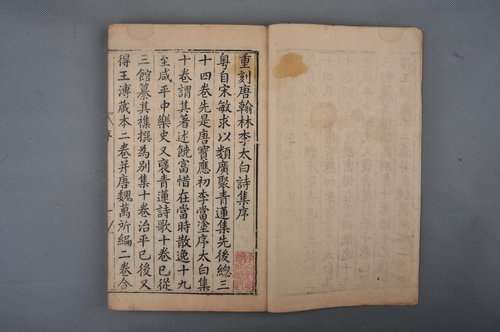 重刻唐翰林李太白詩集序
粵自宋敏求以類廣聚青蓮集先後總三
十四卷先是唐寶應初李當塗序太白集
十卷謂其著述饒富惜在當時散逸十九
至咸平中樂史又裒青蓮詩歌十卷已從
三館纂其襍撰為別集十卷治平已後又
得王溥蔵本二卷并唐魏萬所編二卷合